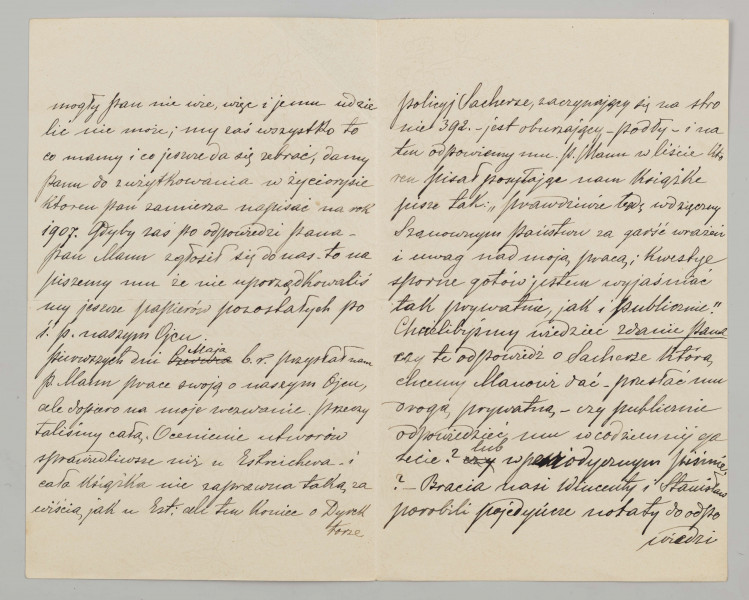 mogły pan nie wie, więc i jemu udzie
lić nie może; my zaś wszystko to
co mamy i co jeszcze da się zebrać, damy
panu do zużytkowania w życiorysie
którem pań zamierza napisać na rok
1907. Gdyby zaś po odpowiedzi pana –
pan Mann zgłosił się do nas – to na
piszemy mu że nie uporządkowaliś
my jeszcze papierów pozostałych po
ś. p. naszym Ojcu.
Pierwszych dni Maja b. r. przysłał nam
p. Mann pracę swoją o naszym Ojcu,
ale dopiero na moje wezwanie. Przeczy
taliśmy całą. Ocenienie utworów
sprawiedliwsze niż u Estreichera – i
cała książka nie zaprawna taką za
wiścią, jak u Est. ale ten koniec o Dyrek
torze
policyj Sacherze, zaczynający się na stro
nie 392. – jest oburzający – podły – i na
ten odpowiemy mu. p. Mann w liście któ
ren pisał posyłając nam książkę
pisze tak: „prawdziwie będę wdzięczny
Szanownym państwu za garść wrażeń
i uwag nad moją pracą; kwestye
sporne gotów jestem wyjaśniać
tak prywatnie, jak i publicznie."
Chcielibyśmy wiedzieć zdanie pana
czy tę odpowiedź o Sacherze którą
chcemy Manowi dać – przesłać mu
drogą prywatną, – czy publicznie
odpowiedzieć mu w codziennej ga
zecie? czy lub w periodycznym piśmie,
? – Bracia nasi Wincenty i Stanisław
porobili pojedyńcze notaty do odpo
wiedzi